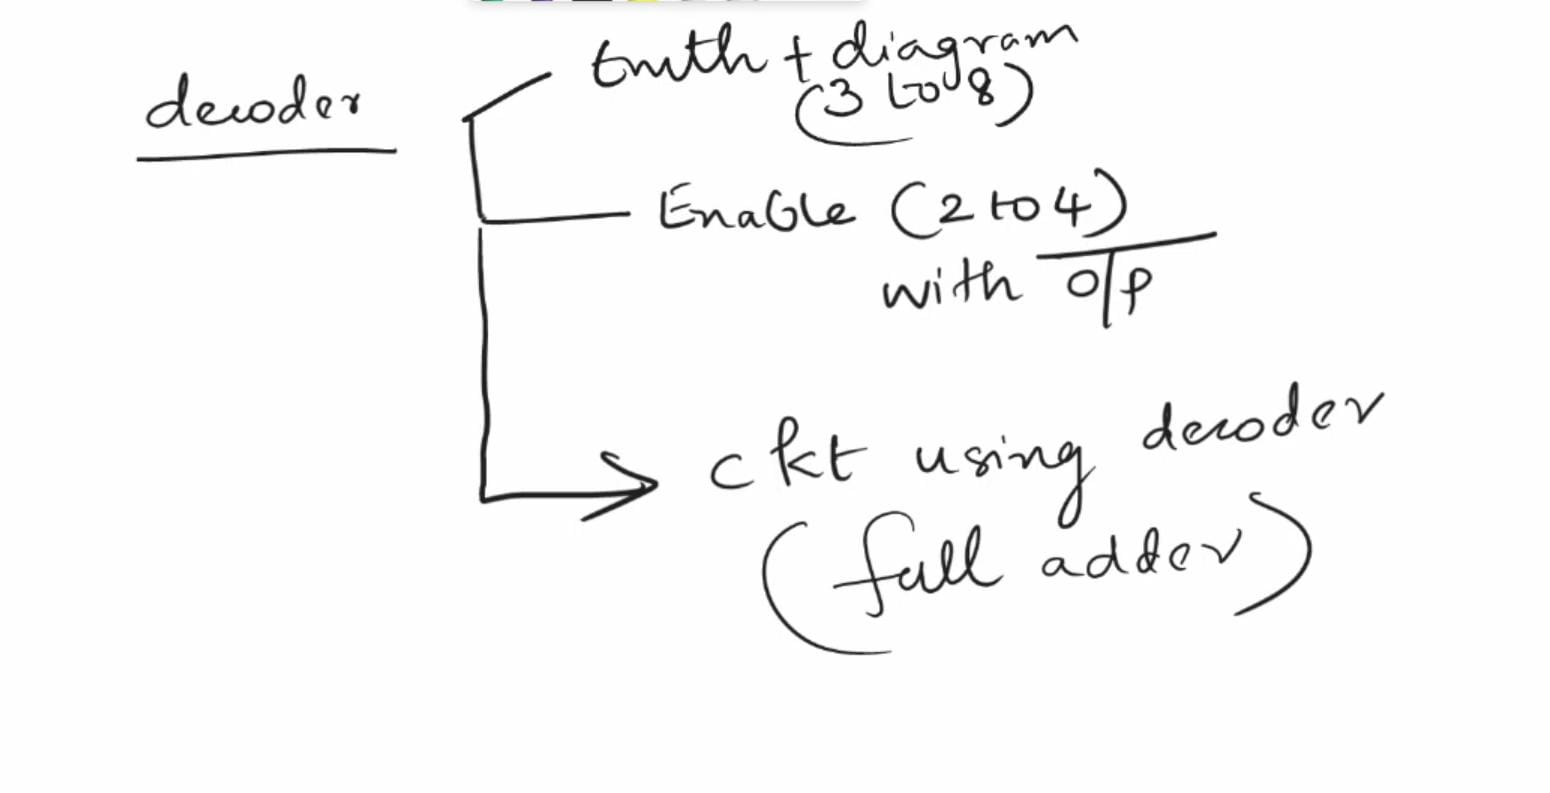 decoder
truth + diagram
(3 to 8)
Enable (2 to 4)
with o/p
ckt using decoder
(full adder)